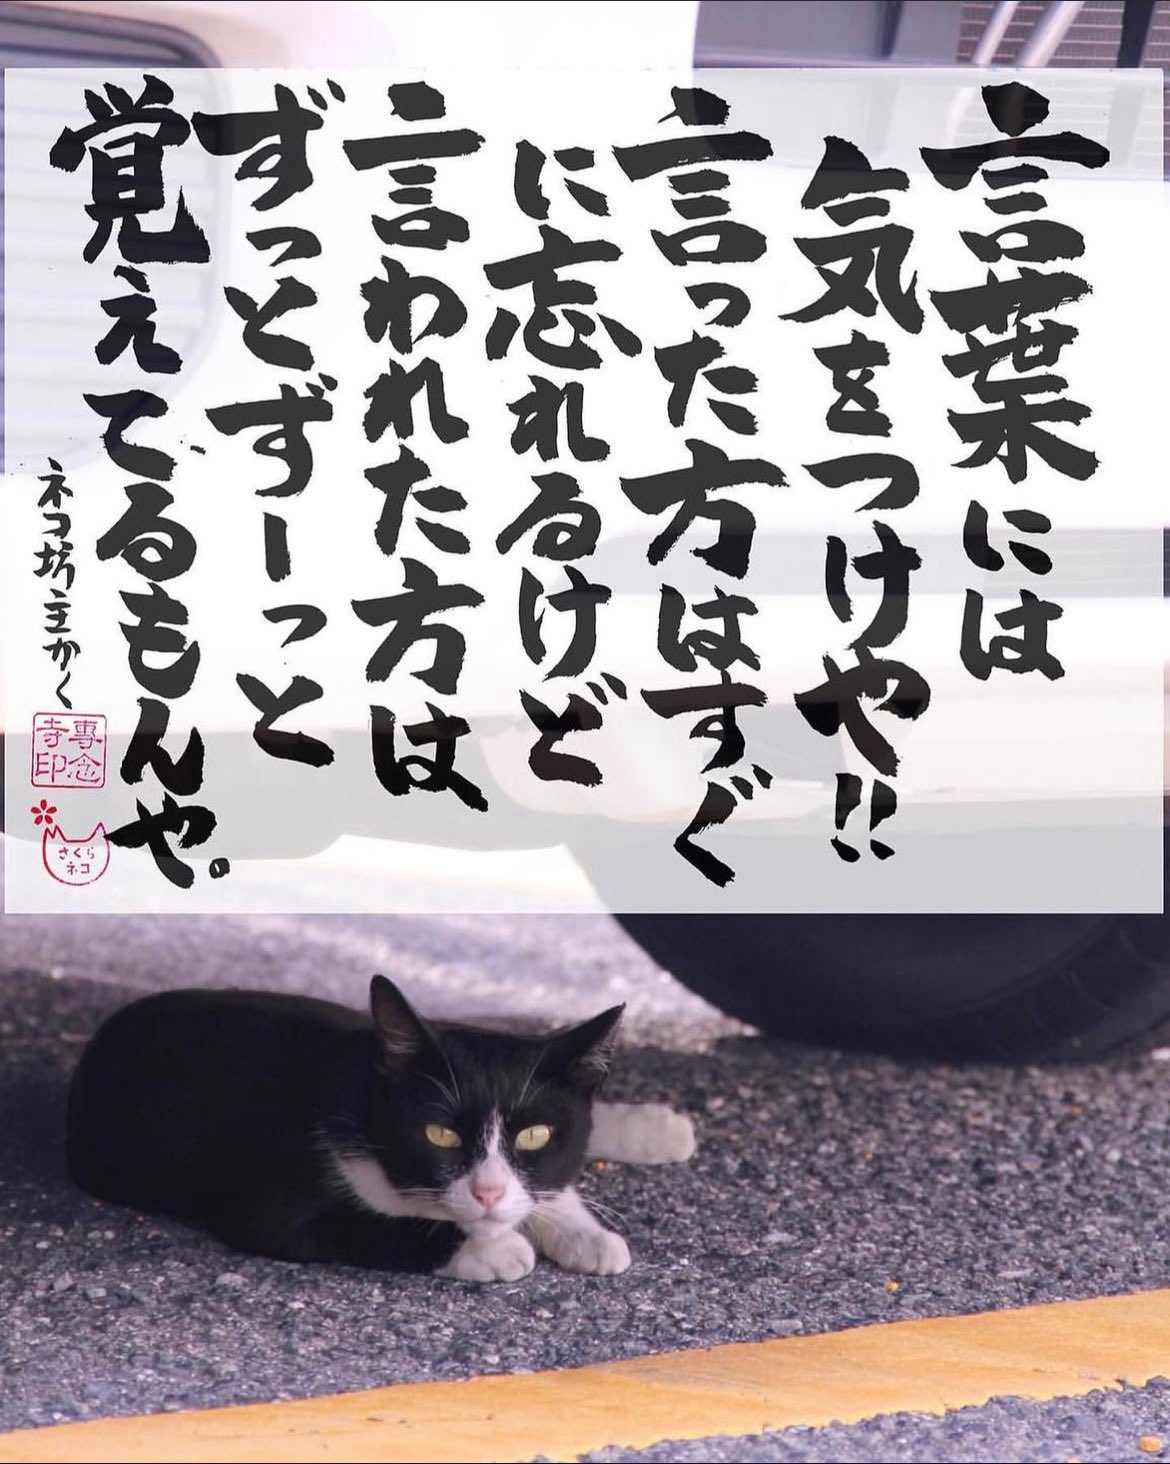 言葉には
気をつけや!!
言った方はすぐ
に忘れるけど
言われた方は
ずっとずーっと
覚えてるもんや。
ネコ坊主かく
專念
寺印
さくら
ネコ